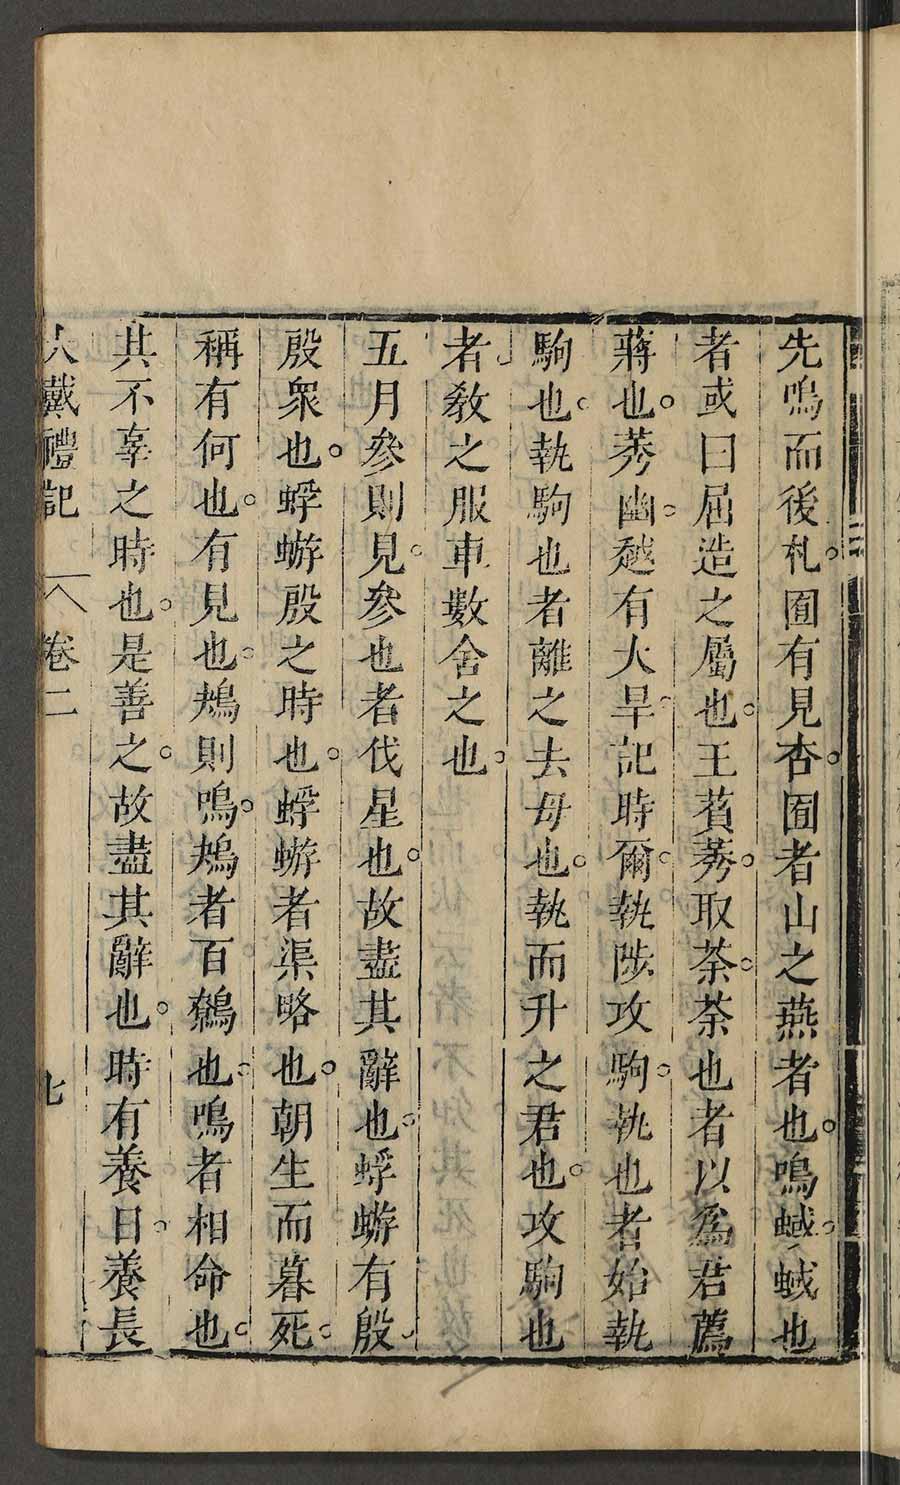 先鳴而後札。囿有見杏。囿者山之燕者也。鳴蜮。蜮也
者或曰屈造之屬也。王萯莠。取荼。荼也者以爲君薦
蔣也。莠幽。越有大旱。記時爾。執陟攻駒。執也者始執
駒也。執駒也者離之去母也。執而升之君也。攻駒也
者教之服車數舍之也。
五月參則見。參也者伐星也。故盡其辭也。蜉蝣有殷。
殷衆也。蜉蝣殷之時也。蜉蝣者渠略也。朝生而暮死。
稱有何也。有見也。鴂則鳴。鴂者百鷯也。鳴者相命也。
其不辜之時也。是善之。故盡其辭也。時有養日。養長
大戴禮記 卷二 七